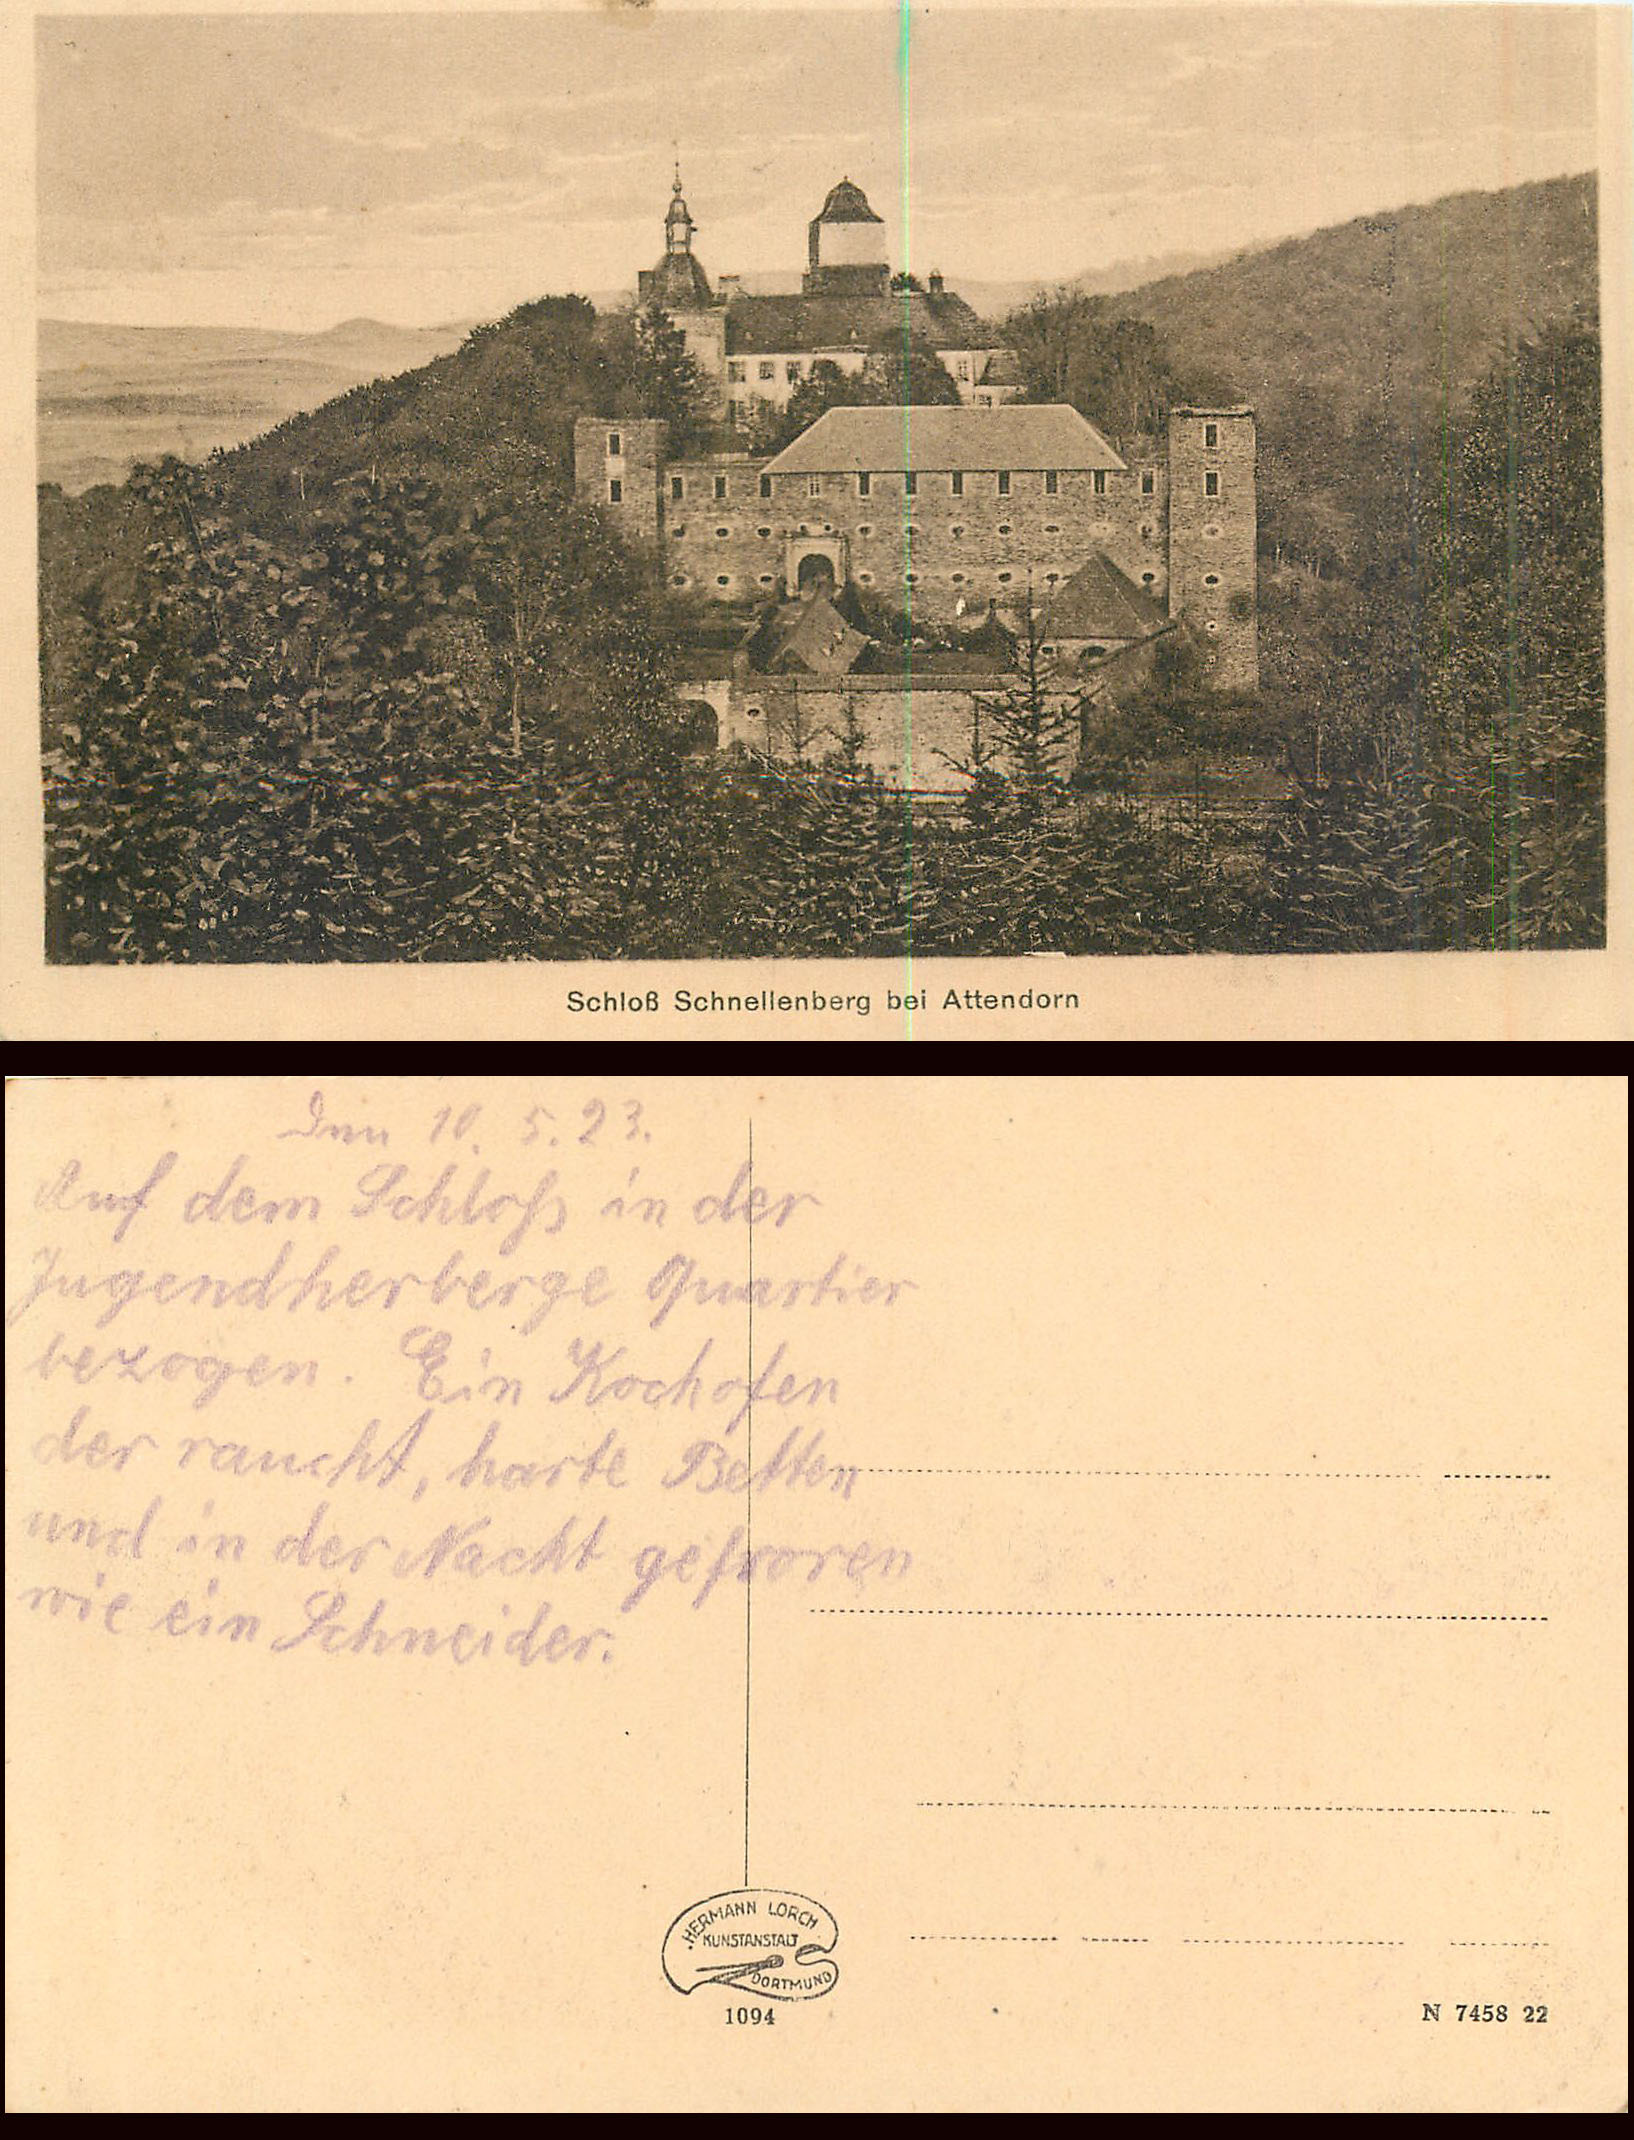 Schloß Schnellenberg bei Attendorn
Den 10. 5. 23.
Auf dem Schloß in der
Jugendherberge Quartier
bezogen. Ein Kochofen
der raucht, harte Betten
und in der Nacht gefroren
wie ein Schneider.
HERMANN LORCH
KUNSTANSTALT
DORTMUND
1094
N 7458 22